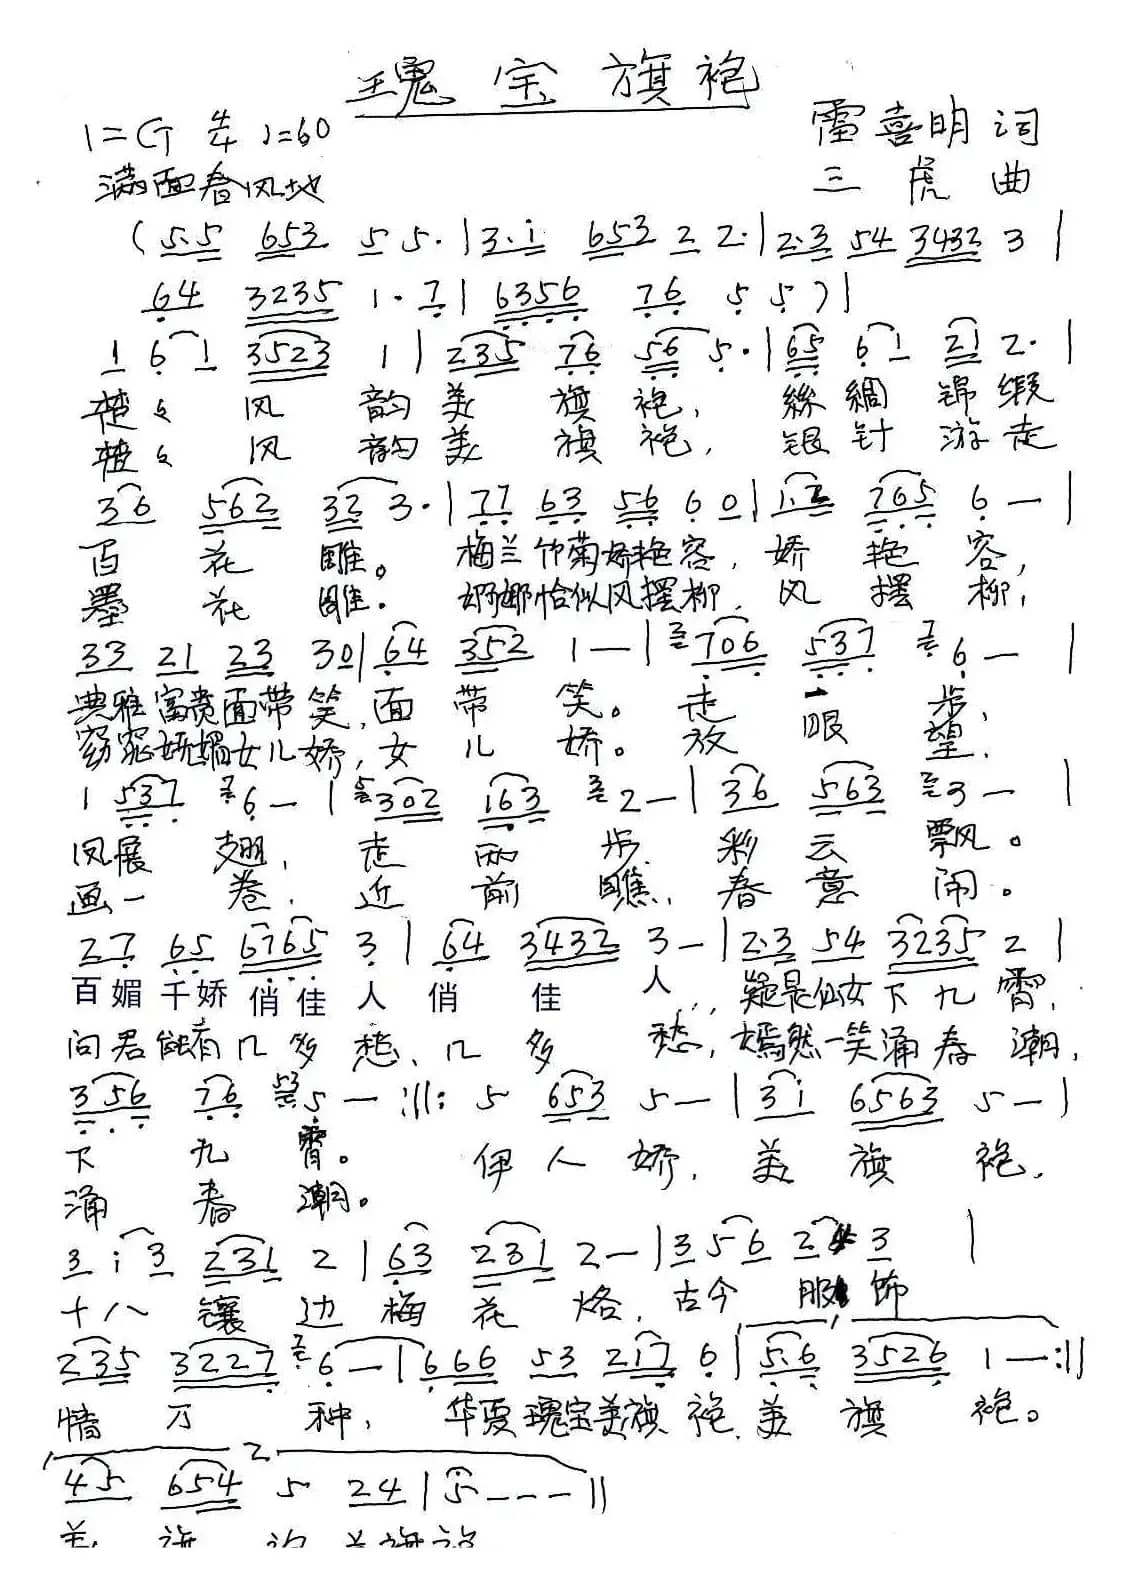 瑰宝旗袍
1=G 4/4 ♩=60
雷喜明词
满面春风地
三虎曲
(5.5 653 5 5.|3.i 653 2 2.|2.3 54 3432 3|
64 3235 1.7|6356 76 5 5)|
1 6 1 3523 1|235 76 56 5.|65 6 1 21 2.|
楚々风韵美旗袍，丝绸锦缎
楚々风韵美旗袍，银针游走
36 562 32 3.|77 63 56 6 0|1.2 765 6—|
百花雕。梅兰竹菊娇艳容，娇艳容，
墨花雕。婀娜恰似风摆柳，风摆柳，
33 21 23 30|64 352 1—|706 537 6—|
典雅富贵面带笑，面带笑。走一步，
窈窕妩媚女儿娇，女儿娇。放眼望，
1 537 6—|302 163 2—|36 563 3—|
凤展翅，走两步，彩云飘。
画一卷，近前瞧，春意闹。
27 65 6765 3|64 3432 3—|2.3 54 3235 2|
百媚千娇俏佳人俏佳人，疑是仙女下九霄，
问君能有几多愁，几多愁，嫣然一笑涌春潮，
356 76 5—:||: 5 653 5—|3i 6563 5—|
下九霄。伊人娇，美旗袍，
涌春潮。
3 i 3 231 2|63 231 2—|3 56 2 3|
十八镶边梅花烙，古今服饰
235 3227 6—|666 53 217 6|5.6 3526 1—:||
情万种，华夏瑰宝美旗袍，美旗袍。
2
45 654 5 24|5———||
美旗袍美旗袍